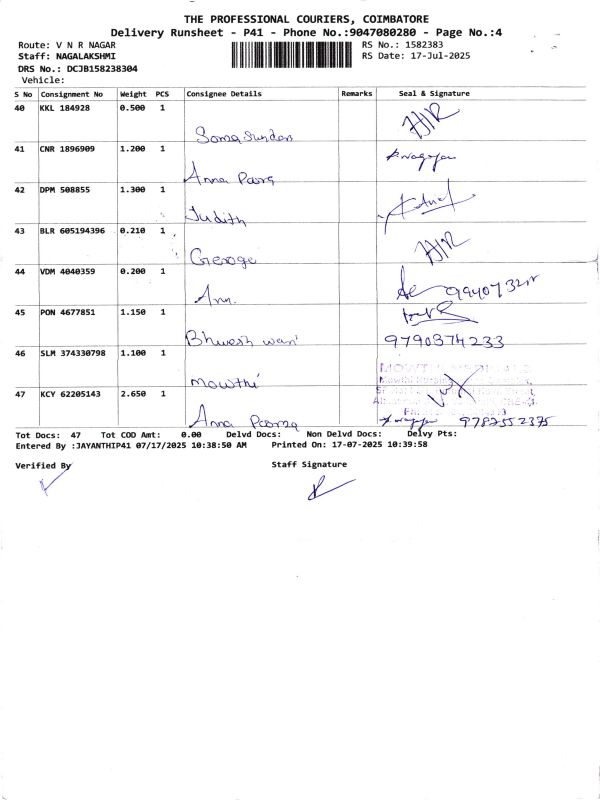 THE PROFESSIONAL COURIERS, COIMBATORE
Delivery Runsheet - P41 - Phone No.:9047080280 - Page No.:4
Route: V N R NAGAR
RS No.: 1582383
Staff: NAGALAKSHMI
RS Date: 17-Jul-2025
DRS No.: DCJB158238304
Vehicle:
S No Consignment No Weight PCS Consignee Details Remarks Seal & Signature
40 KKL 184928 0.500 1
Soma Sundar
41 CNR 1896909 1.200 1
Anna
42 DPM 508855 1.300 1
Judith
43 BLR 605194396 0.210 1
George
44 VDM 4040359 0.200 1
Ann.
45 PON 4677851 1.150 1
9790374233
46 SLM 374330798 1.100 1
Mowthi
47 KCY 62205143 2.650 1
Anna 9782552375
Tot Docs: 47 Tot COD Amt: 0.00 Delvd Docs: Non Delvd Docs: Delvy Pts:
Entered By :JAYANTHIP41 07/17/2025 10:38:50 AM Printed On: 17-07-2025 10:39:58
Verified By Staff Signature